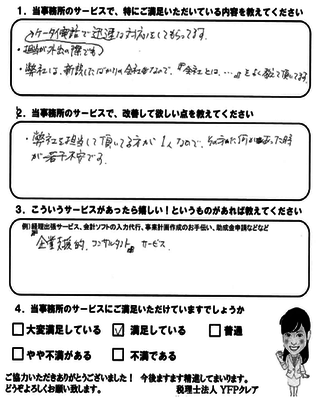 1．当事務所のサービスで、特にご満足いただいている内容を教えてください
・ケータイ電話で迅速な対応をしてもらってます。
・担当が外出の際でも
・弊社は、新設したばかりの会社なので、『会社とは、…』をよく教えて頂いてます。
2．当事務所のサービスで、改善して欲しい点を教えてください
・弊社を担当して頂いてる方が1人なので、その方に何かあった時
が若干不安です。
3．こういうサービスがあったら嬉しい！というものがあれば教えてください
例）経理出張サービス、会計ソフトの入力代行、事業計画作成のお手伝い、助成金申請などなど
企業支援的、コンサルタント サービス
4．当事務所のサービスにご満足いただけていますでしょうか
大変満足している 満足している 普通
やや不満がある 不満である
ご協力いただきありがとうございました！ 今後ますます精進してまいります。
どうぞよろしくお願い致します。 税理士法人 YFPクレア